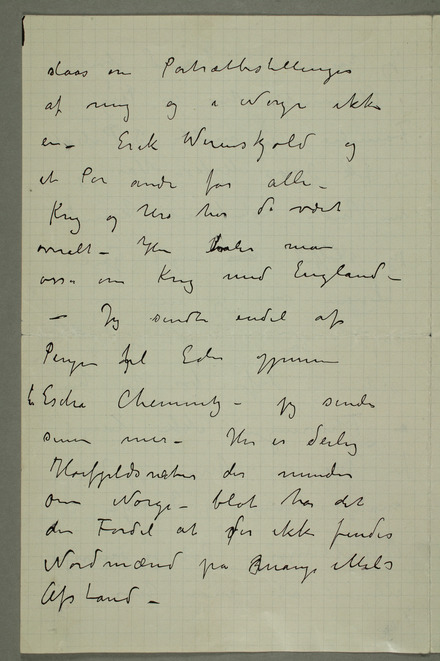 slaas om Portrætbestillinger
af mig og i Norge ikke
en – Erik Werenskjold og
et Par andre får alle –
Krig og Uro har de været
overalt – Her taler man
osså om Krig med England –
– Jeg sendte endel af
Pengene til Eder gjennem
Esche Chemnitz – jeg sender
senere mer – Her er deilig
Høifjeldsnatur der minder
om Norge – blot har det
den Fordel at der ikke findes
Nordmænd på mange Miles
Afstand –